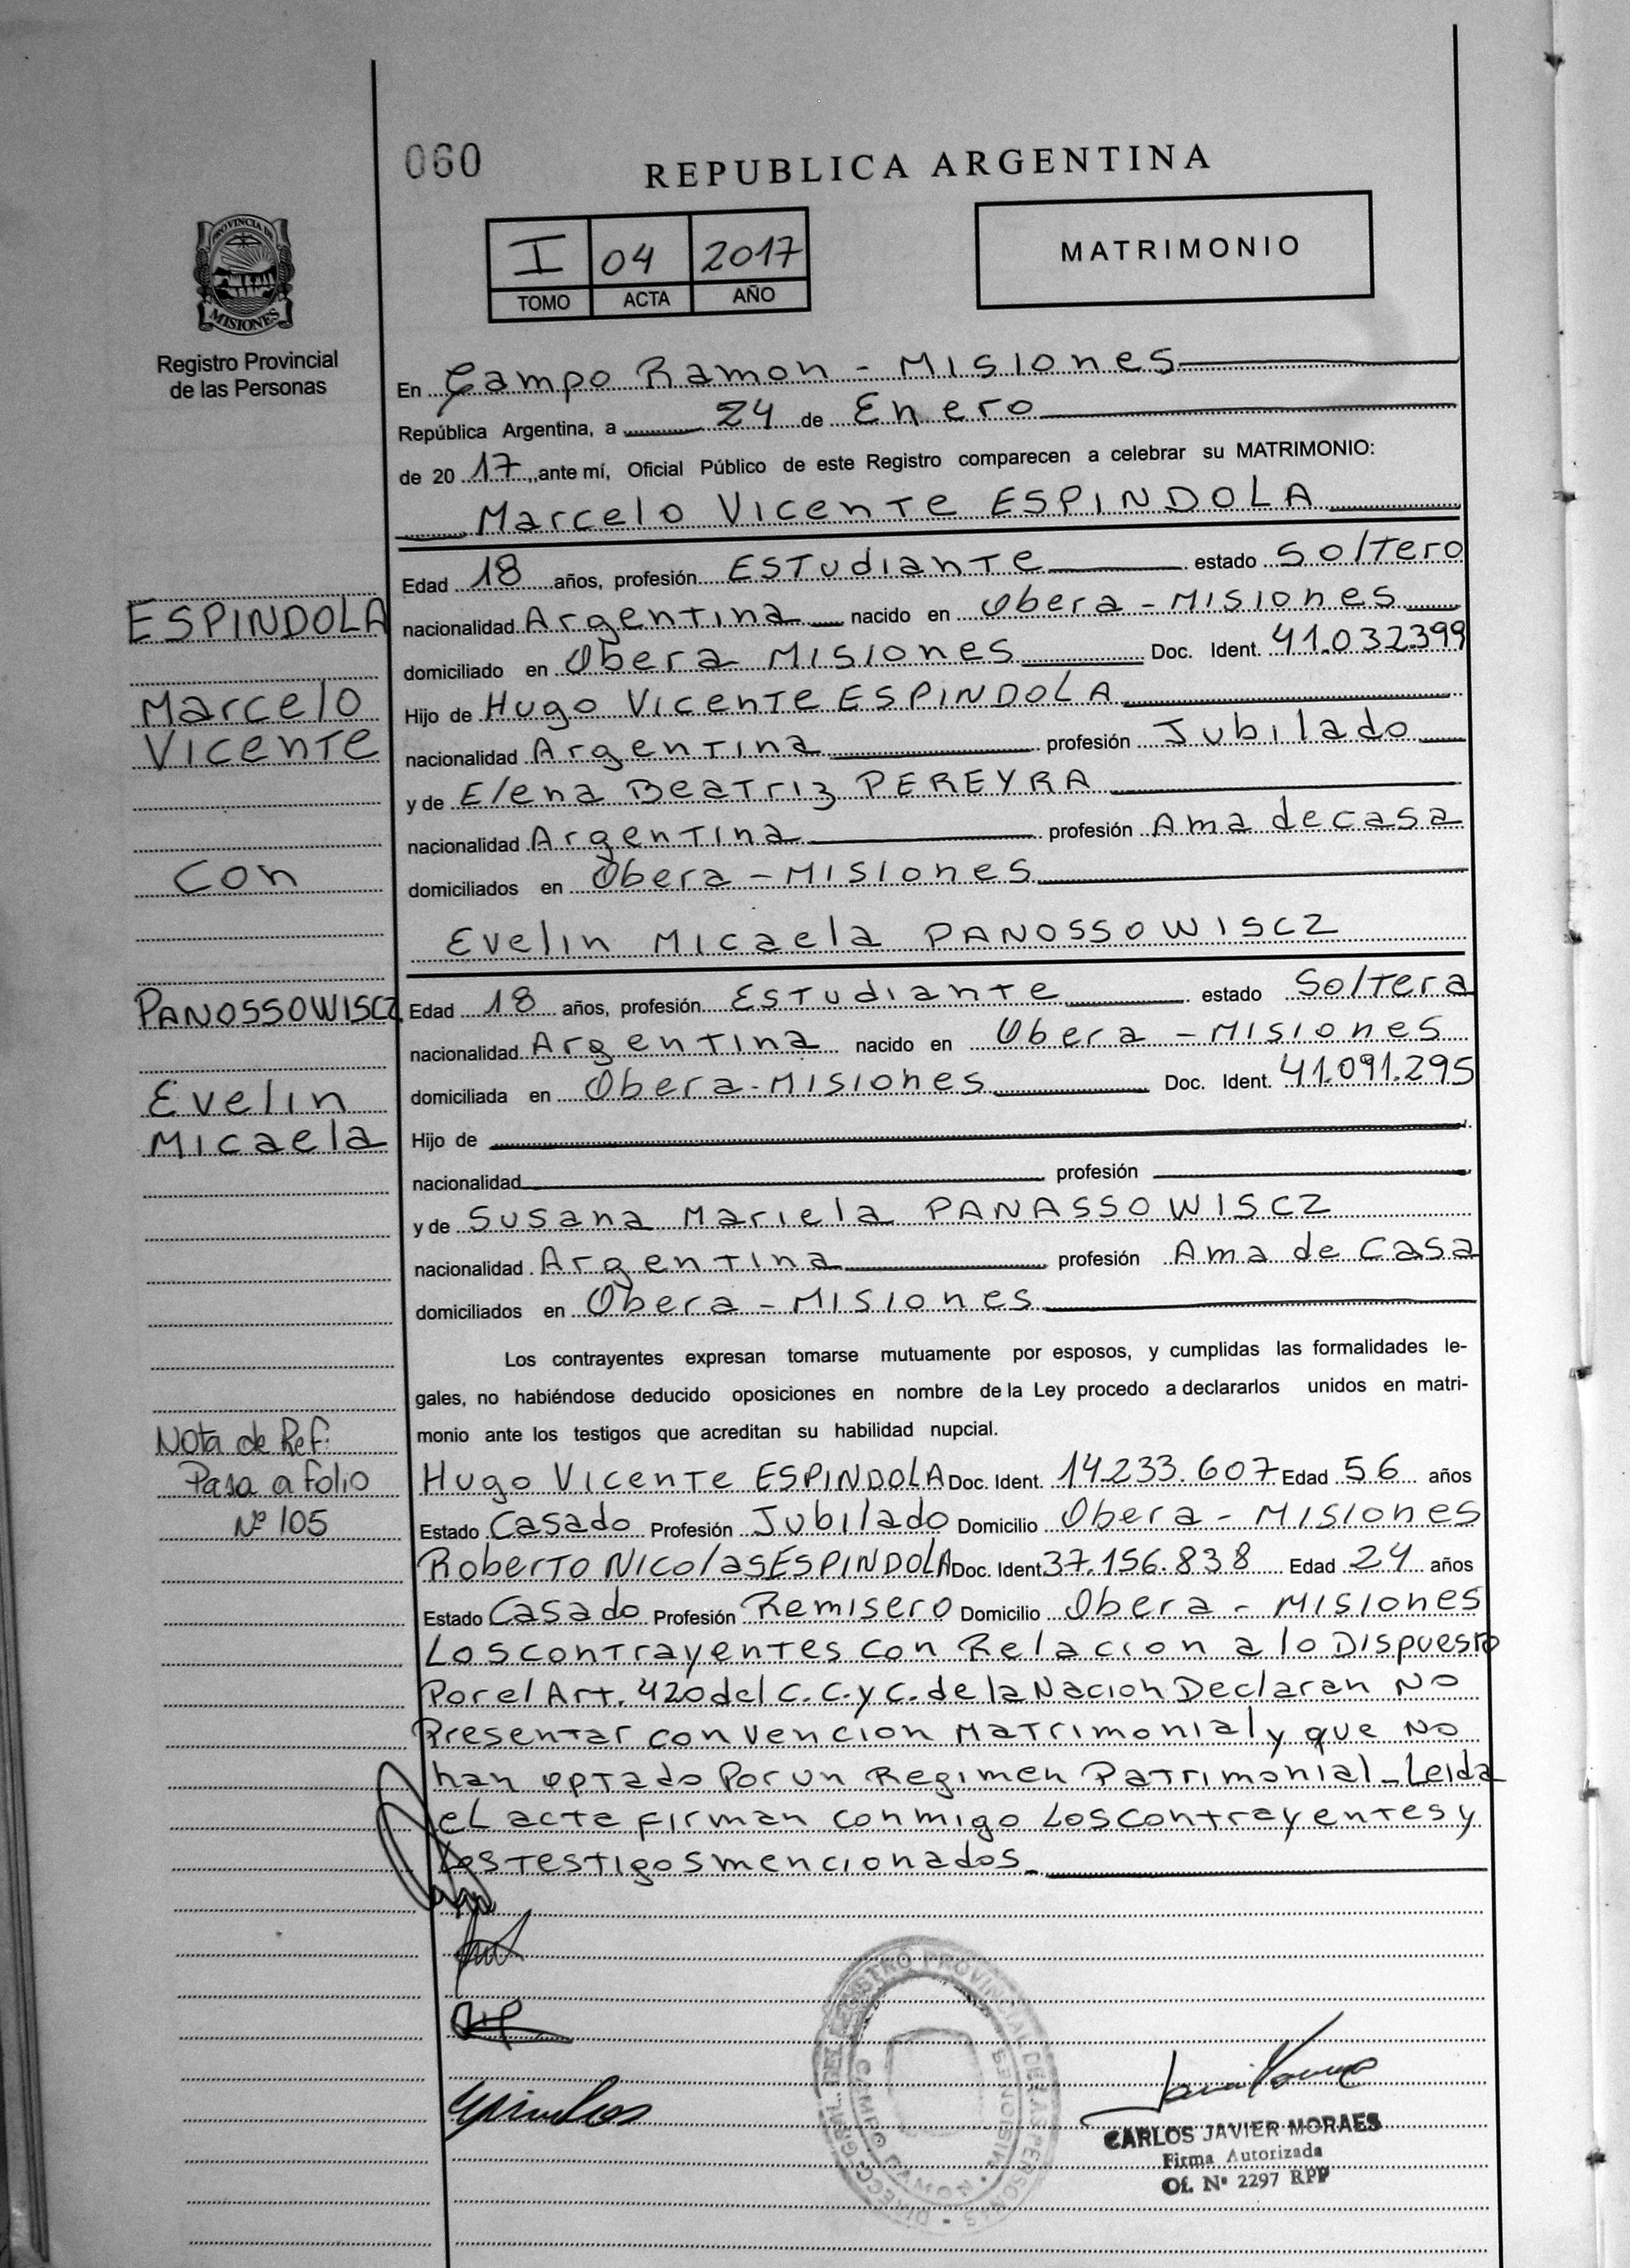 060
REPUBLICA ARGENTINA
PROVINCIA DE
MISIONES
Registro Provincial
de las Personas
I 04 2017
TOMO ACTA AÑO
MATRIMONIO
En Campo Ramon - Misiones
República Argentina, a 24 de Enero
de 20 17, ante mí, Oficial Público de este Registro comparecen a celebrar su MATRIMONIO:
Marcelo Vicente ESPINDOLA
Edad 18 años, profesión Estudiante estado Soltero
nacionalidad Argentina nacido en Obera - Misiones
domiciliado en Obera Misiones Doc. Ident. 41.032.399
Hijo de Hugo Vicente ESPINDOLA
nacionalidad Argentina profesión Jubilado
y de Elena Beatriz PEREYRA
nacionalidad Argentina profesión Ama de casa
domiciliados en Obera - Misiones
Evelin Micaela PANOSSOWISCZ
Edad 18 años, profesión Estudiante estado Soltera
nacionalidad Argentina nacido en Obera - Misiones
domiciliada en Obera - Misiones Doc. Ident. 41.091.295
Hijo de
nacionalidad profesión
y de Susana Mariela PANASSOWISCZ
nacionalidad Argentina profesión Ama de Casa
domiciliados en Obera - Misiones
Los contrayentes expresan tomarse mutuamente por esposos, y cumplidas las formalidades le-
gales, no habiéndose deducido oposiciones en nombre de la Ley procedo a declararlos unidos en matri-
monio ante los testigos que acreditan su habilidad nupcial.
Hugo Vicente ESPINDOLA Doc. Ident. 14.233.607 Edad 56 años
Estado Casado Profesión Jubilado Domicilio Obera - Misiones
Roberto Nicolas ESPINDOLA Doc. Ident 37.156.838 Edad 24 años
Estado Casado Profesión Remisero Domicilio Obera - Misiones
Los contrayentes con Relacion a lo Dispuesto
Por el Art. 420 del C.C. y C. de la Nacion Declaran No
Presentar convencion Matrimonial y que No
han optado Por un Regimen Patrimonial - Leida
el acta firman conmigo Los contrayentes y
Los testigos mencionados.
ESPINDOLA
Marcelo
Vicente
con
PANOSSOWISCZ
Evelin
Micaela
Nota de Ref:
Pasa a folio
Nº 105
CAMPO RAMON
MISIONES
CARLOS JAVIER MORAES
Firma Autorizada
Of. Nº 2297 RPP